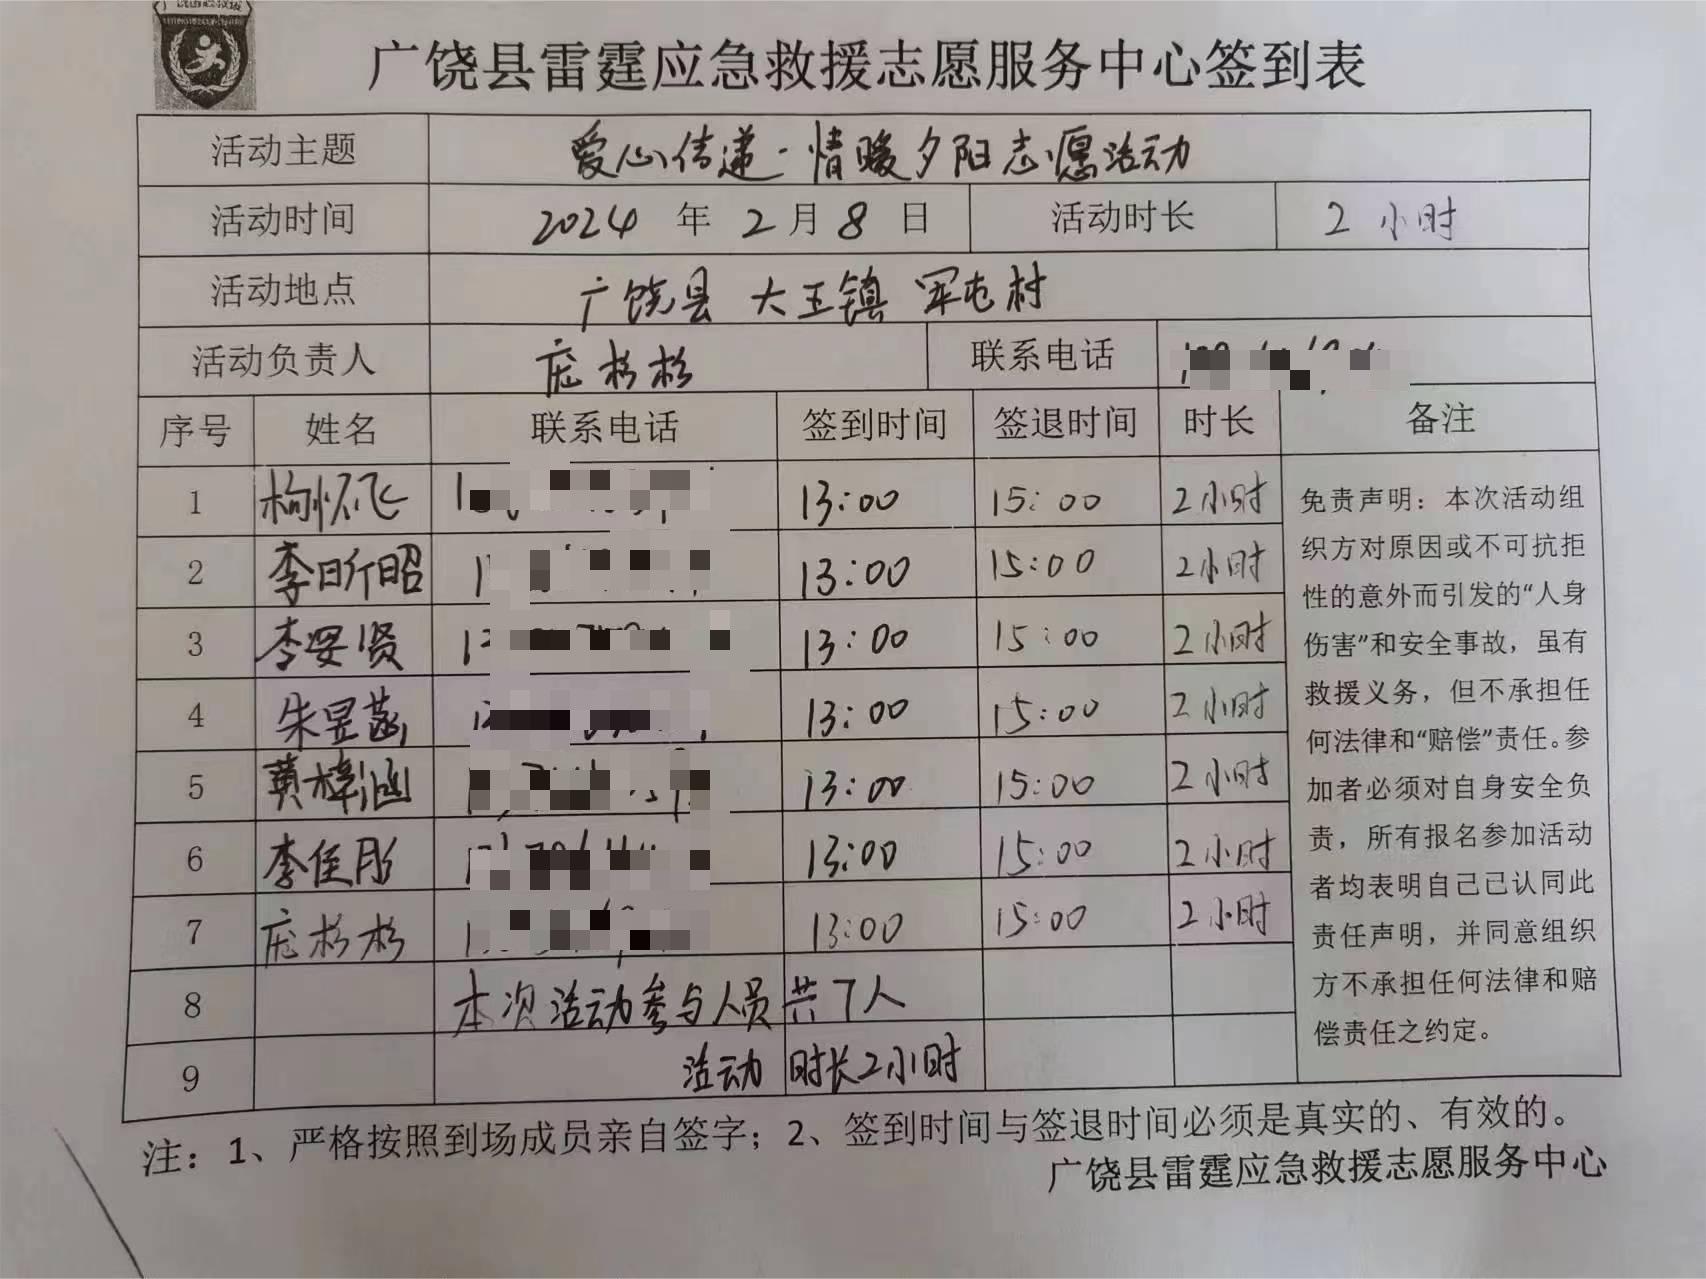 广饶县雷霆应急救援志愿服务中心签到表
活动主题 爱心传递·情暖夕阳志愿活动
活动时间 2024 年 2 月 8 日 活动时长 2 小时
活动地点 广饶县 大王镇 军屯村
活动负责人 庞杉杉 联系电话
序号 姓名 联系电话 签到时间 签退时间 时长 备注
1 怀飞 13:00 15:00 2小时
2 李昕昭 13:00 15:00 2小时
3 李安贤 13:00 15:00 2小时
4 朱昱菡 13:00 15:00 2小时
5 黄梓涵 13:00 15:00 2小时
6 李佳彤 13:00 15:00 2小时
7 庞杉杉 13:00 15:00 2小时
8 本次活动参与人员共7人
9 活动时长2小时
免责声明：本次活动组
织方对原因或不可抗拒
性的意外而引发的“人身
伤害”和安全事故，虽有
救援义务，但不承担任
何法律和“赔偿”责任。参
加者必须对自身安全负
责，所有报名参加活动
者均表明自己已认同此
责任声明，并同意组织
方不承担任何法律和赔
偿责任之约定。
注：1、严格按照到场成员亲自签字；2、签到时间与签退时间必须是真实的、有效的。
广饶县雷霆应急救援志愿服务中心